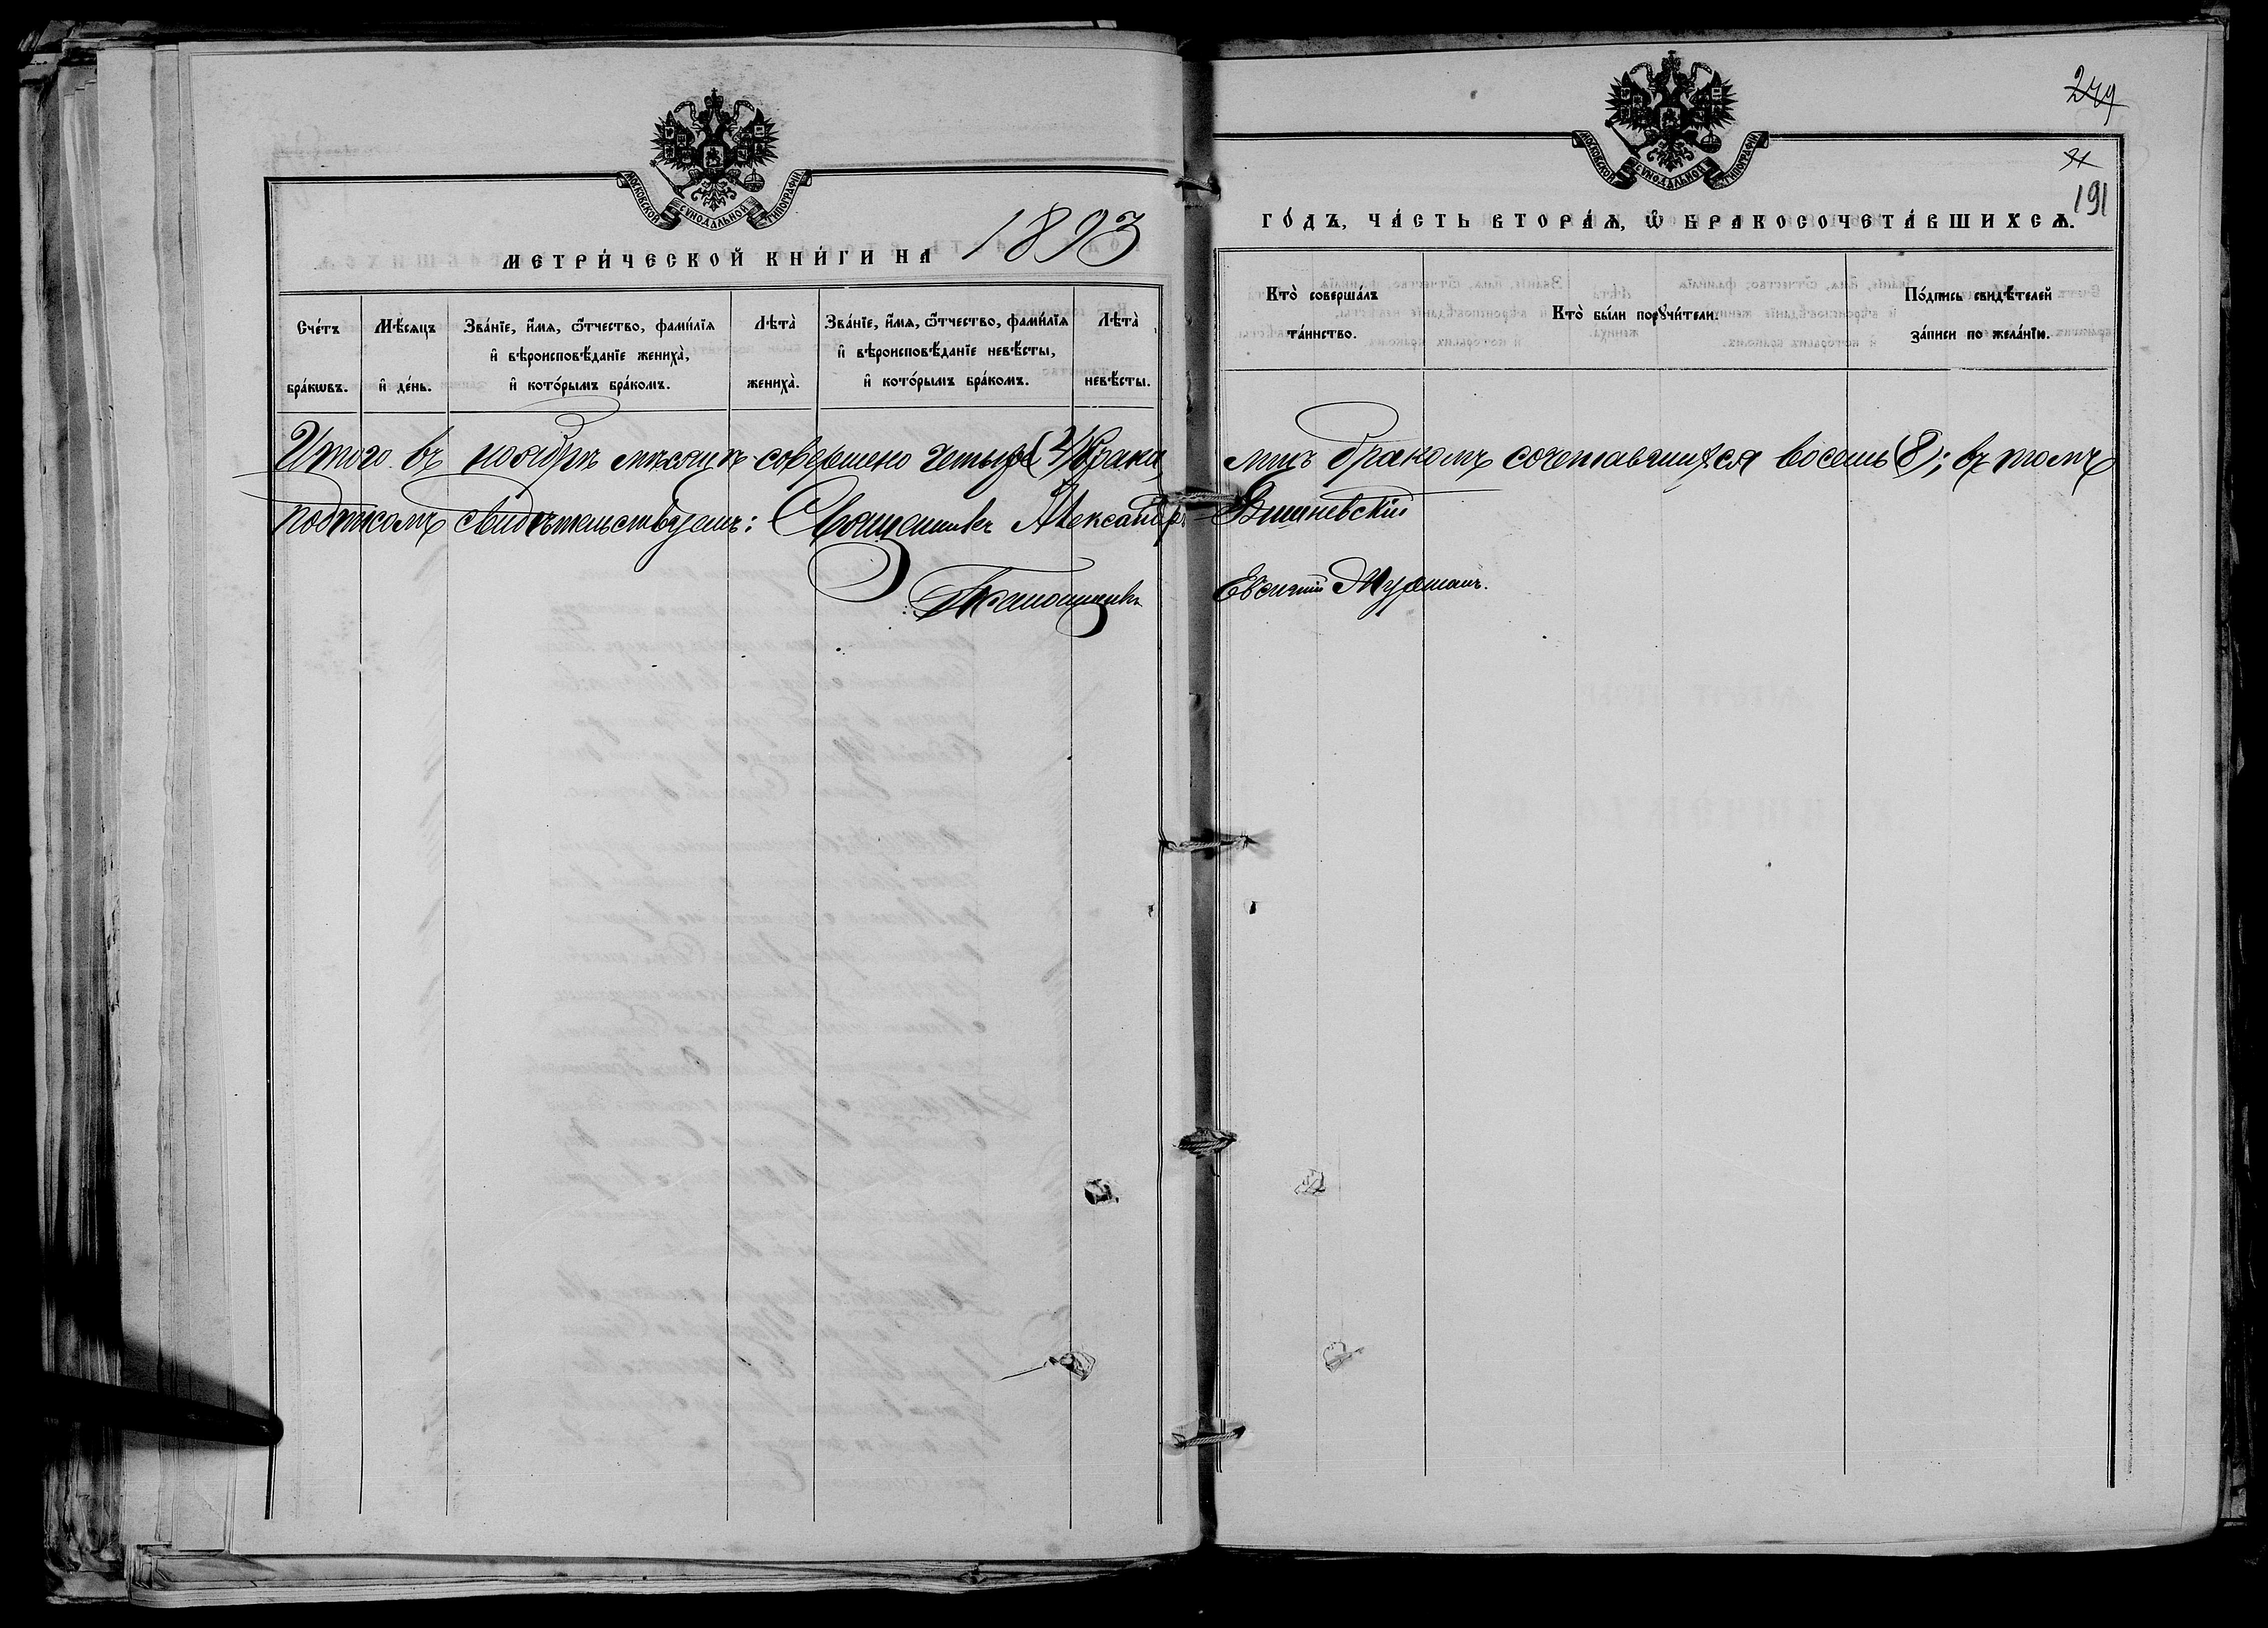 МОСКОВСКОЙ СѴНОДАЛЬНОЙ ТИПОГРАФІИ
МЕТРИ́ЧЕСКОЙ КНИ́ГИ НА 1893
Сче́тъ бра́кωвъ.
Мѣ́сяцъ и҆ де́нь.
Зва́нїе, и҆́мѧ, ѻ҆́тчество, фами́лїѧ и҆ вѣроисповѣ́данїе жениха̀, и҆ кото́рымъ бра́комъ.
Лѣта̀ жениха̀.
Зва́нїе, и҆́мѧ, ѻ҆́тчество, фами́лїѧ и҆ вѣроисповѣ́данїе невѣ́сты, и҆ кото́рымъ бра́комъ.
Лѣта̀ невѣ́сты.
Итого въ ноябрѣ мѣсяцѣ совершено четыре (4) брака
подписомъ свидѣтельствуемъ: Священникъ Александръ
Псаломщикъ
249
31
191
МОСКОВСКОЙ СѴНОДАЛЬНОЙ ТИПОГРАФІИ
ГО́ДЪ, ЧА́СТЬ ВТОРА́Ѧ, Ѡ҆ БРАКОСОЧЕТА́ВШИХСѦ.
Кто̀ соверша́лъ та́инство.
Кто̀ бы́ли порꙋчи́тели.
По́дпись свидѣ́телей за́писи по жела́нїю.
лицъ бракомъ сочетавшихся восемь (8); въ томъ
Вишневскій
Евгеній Мурашъ.